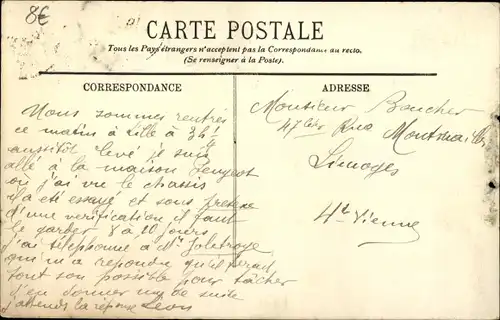 8€
CARTE POSTALE
Tous les Pays étrangers n'acceptent pas la Correspondance au recto.
(Se renseigner à la Poste).
CORRESPONDANCE
Nous sommes rentrés
ce matin à Lille à 3h ¼
aussitôt levé je suis
allé à la maison Peugeot
où j'ai vu le chassis
il a été essayé et sous pretexte
d'une verification il faut
le garder 8 à 10 jours
j'ai téléphoné à Mr
qui m'a repondu qu'il ferait
tout son possible pour tâcher
d'en donner un de suite
j'attends la réponse Léon
ADRESSE
Monsieur Boucher
47 bis Rue
Limoges
Hte Vienne